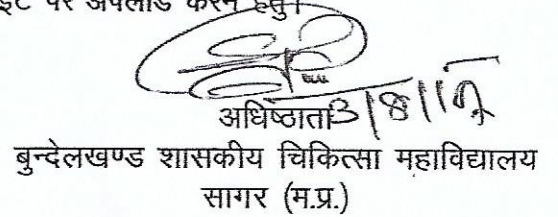 पर अपलोड करने हेतु।
अधिष्ठाता 3/8/17
बुन्देलखण्ड शासकीय चिकित्सा महाविद्यालय
सागर (म.प्र.)